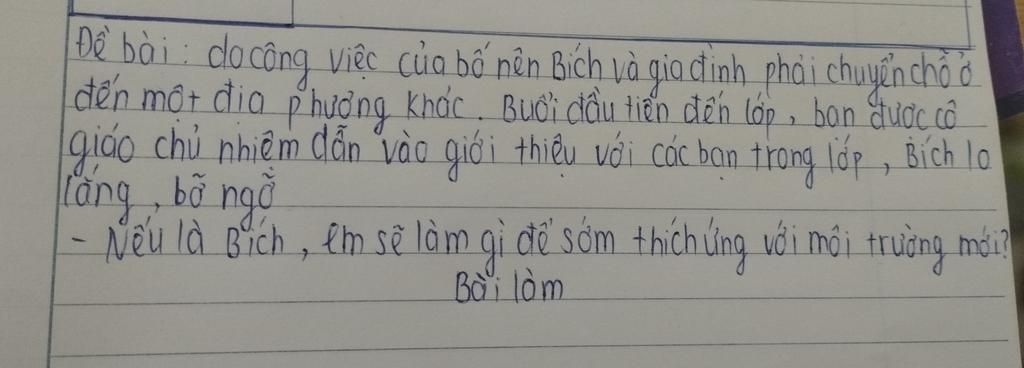 Đề bài: do công việc của bố nên Bích và gia đình phải chuyển chỗ ở
đến một địa phương khác. Buổi đầu tiên đến lớp, bạn được cô
giáo chủ nhiệm dẫn vào giới thiệu với các bạn trong lớp, Bích lo
lắng, bỡ ngỡ
- Nếu là Bích, em sẽ làm gì để sớm thích ứng với môi trường mới?
Bài làm